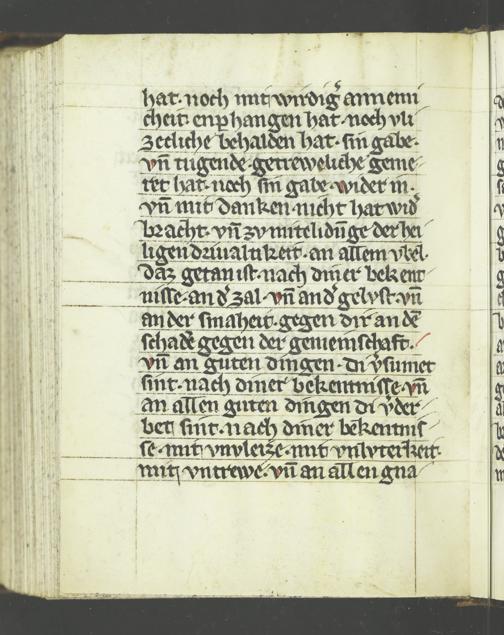 hat· noch mit wirdig᷑ annemi
cheit· enphangen hat· noch vli
zecliche behalden hat· sin gabe·
vn̄ tugende· getreweliche geme
ret hat· noch sin gabe· wider in·
vn̄ mit danken· nicht hat wid᷑
bracht· vn̄ zv mitelidūge der hei
ligen driualtikeit· an allem vbel·
daz getan ist· nach diner bekent
nisse· an d᷑ zal· vn̄ an d᷑ gelust· vn̄
an der smaheit· gegen dir an dē
schadē gegen der gemeinschaft·
vn̄ an guten dingen· di v᷑sumet
sint· nach diner bekentnisse· vn̄
an allen guten dingen di v᷑der
bet sint· nach diner bekentnis
se· mit vnvleize· mit vnlvterkeit·
mit vntrewe· vn̄ an allen gna